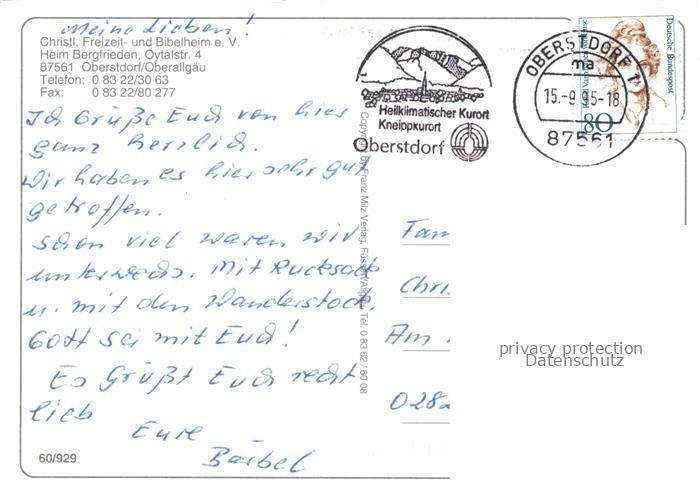 Meine Lieben!
Christl. Freizeit- und Bibelheim e. V.
Heim Bergfrieden, Oytalstr. 4
87561 Oberstdorf/Oberallgäu
Telefon: 0 83 22/30 63
Fax: 0 83 22/80 277
Ich Grüße Euch von hier
ganz herzlich.
Wir haben es hier sehr gut
getroffen.
Schon viel waren wir
unterwegs. Mit Rucksack
u. mit den Wanderstock.
Gott sei mit Euch!
Es Grüßt Euch recht
lieb
Eure
Bärbel
60/929
Copyright by Franz Milz Verlag, Füssen/Allgäu, Tel. 0 83 62 / 60 08
Heilklimatischer Kurort
Kneippkurort
Oberstdorf
OBERSTDORF 1
ma
15.-9.95-18
87561
Deutsche Bundespost
80
Fam
Chri
Am
028
privacy protection
Datenschutz